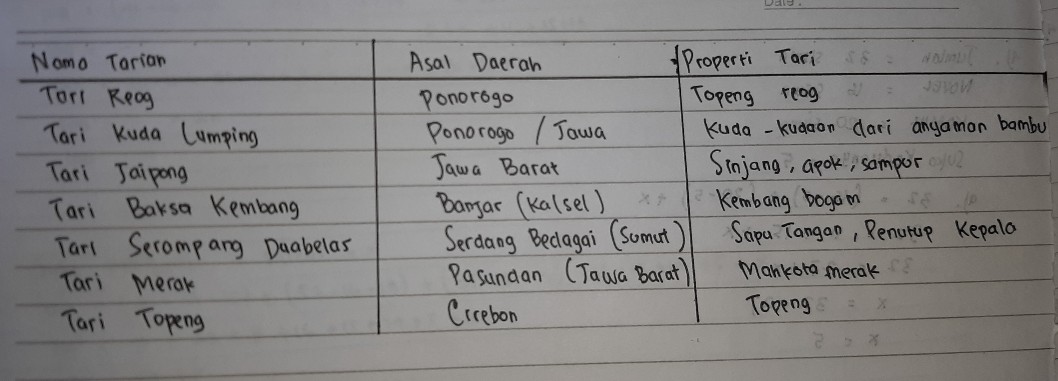 Date:
Nama Tarian Asal Daerah Properti Tari
Tari Reog Ponorogo Topeng reog
Tari Kuda Lumping Ponorogo / Jawa Kuda - kudaan dari anyaman bambu
Tari Jaipong Jawa Barat Sinjang, apok, sampur
Tari Baksa Kembang Banjar (Kalsel) Kembang bogam
Tari Serampang Duabelas Serdang Bedagai (Sumut) Sapu Tangan, Penutup Kepala
Tari Merak Pasundan (Jawa Barat) Mahkota merak
Tari Topeng Cirebon Topeng